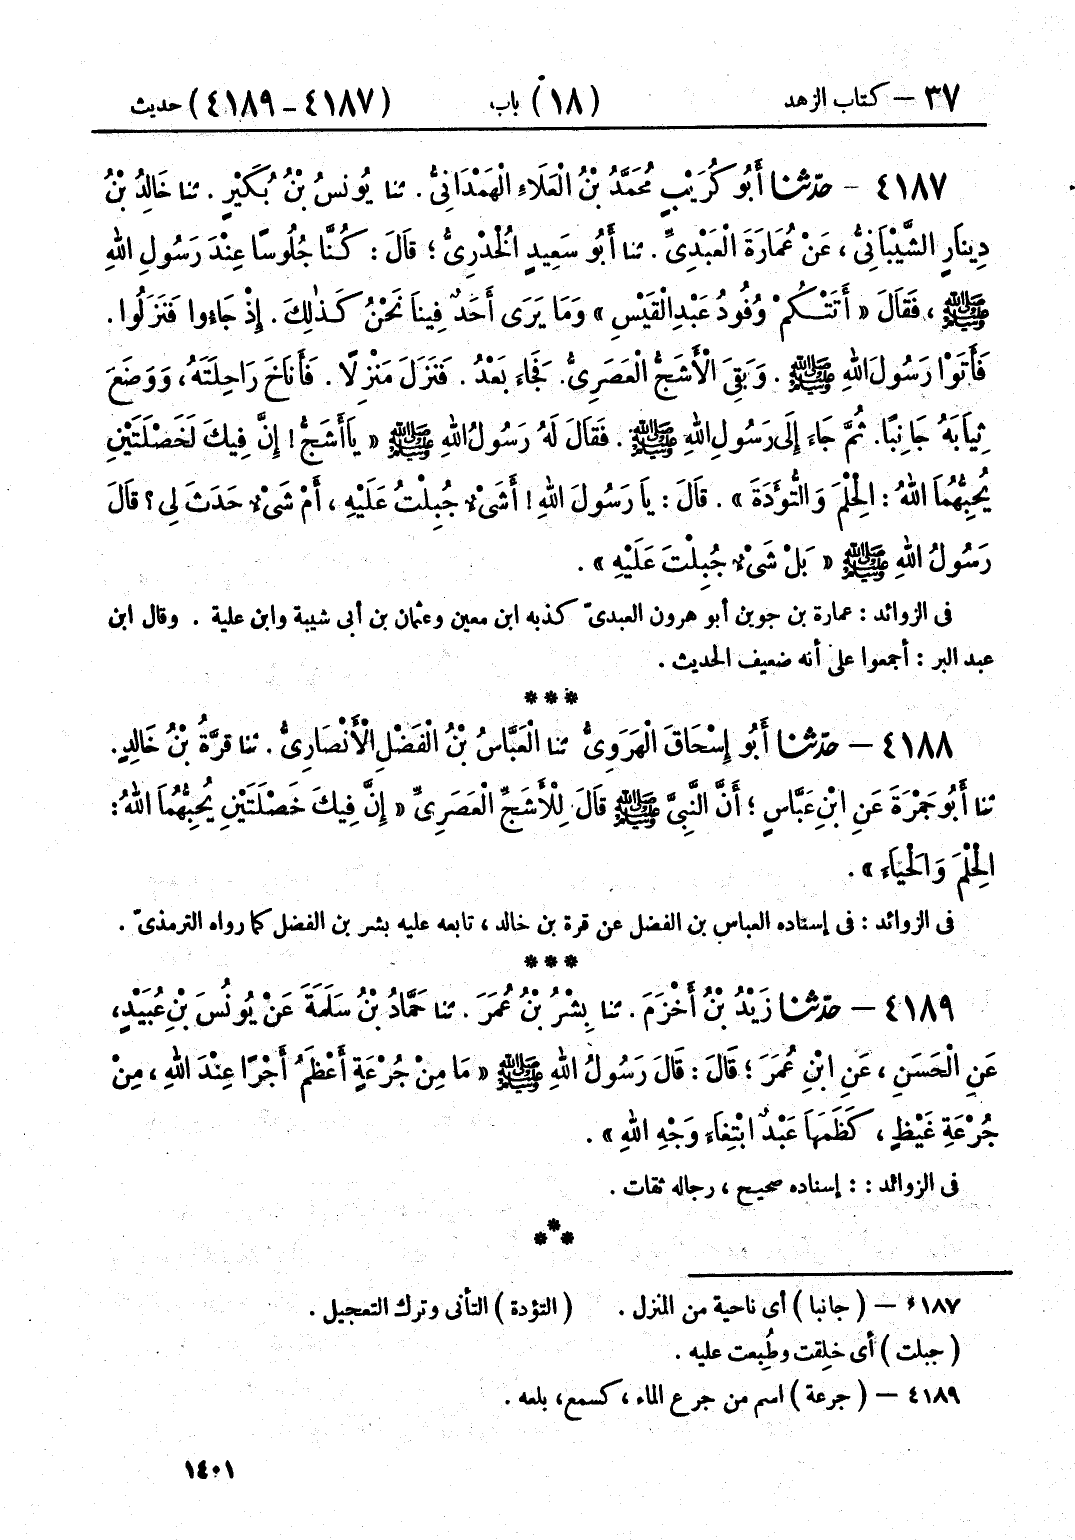 ٣٧ – كتاب الزهد (١٨) باب، (٤١٨٧ – ٤١٨٩) حديث
٤١٨٧ – حَدَّثَنَا أَبُو كُرَيْبٍ مُحَمَّدُ بْنُ الْعَلَاءِ الْهَمْدَانِىُّ . ثنا يُونُسُ بْنُ بُكَيْرٍ . ثنا خَالِدُ بْنُ
دِينَارٍ الشَّيْبَانِىُّ ، عَنْ عُمَارَةَ الْعَبْدِىِّ . ثنا أَبُو سَعِيدٍ الْخُدْرِىُّ ؛ قَالَ : كُنَّا جُلُوسًا عِنْدَ رَسُولِ اللهِ
ﷺ ، فَقَالَ « أَتَتْكُمْ وُفُودُ عَبْدِ الْقَيْسِ » وَمَا يَرَى أَحَدٌ فِينَا نَحْنُ كَذٰلِكَ . إِذْ جَاءوا فَنَزَلُوا .
فَأَتَوْا رَسُولَ اللهِ ﷺ . وَبَقِىَ الْأَشَجُّ الْعَصَرِىُّ. فَجَاءَ بَعْدُ . فَنَزَلَ مَنْزِلًا . فَأَنَاخَ رَاحِلَتَهُ ، وَوَضَعَ
ثِيَابَهُ جَانِبًا. ثُمَّ جَاءَ إِلَى رَسُولِ اللهِ ﷺ . فَقَالَ لَهُ رَسُولُ اللهِ ﷺ « يَا أَشَجُّ ! إِنَّ فِيكَ لَخَصْلَتَيْنِ
يُحِبُّهُمَا اللهُ : الْحِلْمَ وَالتُّؤَدَةَ » . قَالَ : يَا رَسُولَ اللهِ ! أَشَىْءٌ جُبِلْتُ عَلَيْهِ ، أَمْ شَىْءٌ حَدَثَ لِى ؟ قَالَ
رَسُولُ اللهِ ﷺ « بَلْ شَىْءٌ جُبِلْتَ عَلَيْهِ » .
فى الزوائد : عمارة بن جوين أبو هرون العبدىّ كذبه ابن معين وعثمان بن أبى شيبة وابن علية . وقال ابن
عبد البر : أجمعوا على أنه ضعيف الحديث .
***
٤١٨٨ – حَدَّثَنَا أَبُو إِسْحَاقَ الْهَرَوِىُّ ثنا الْعَبَّاسُ بْنُ الْفَضْلِ الْأَنْصَارِىُّ . ثنا قُرَّةُ بْنُ خَالِدٍ.
ثنا أَبُو جَمْرَةَ عَنِ ابْنِ عَبَّاسٍ ؛ أَنَّ النَّبِىَّ ﷺ قَالَ لِلْأَشَجِّ الْعَصَرِىِّ « إِنَّ فِيكَ خَصْلَتَيْنِ يُحِبُّهُمَا اللهُ :
الْحِلْمَ وَالْحَيَاءَ » .
فى الزوائد : فى إسناده العباس بن الفضل عن قرة بن خالد ، تابعه عليه بشر بن الفضل كما رواه الترمذىّ .
***
٤١٨٩ – حَدَّثَنَا زَيْدُ بْنُ أَخْزَمَ . ثنا بِشْرُ بْنُ عُمَرَ . ثنا حَمَّادُ بْنُ سَلَمَةَ عَنْ يُونُسَ بْنِ عُبَيْدٍ،
عَنِ الْحَسَنِ ، عَنِ ابْنِ عُمَرَ ؛ قَالَ : قَالَ رَسُولُ اللهِ ﷺ « مَا مِنْ جُرْعَةٍ أَعْظَمُ أَجْرًا عِنْدَ اللهِ ، مِنْ
جُرْعَةِ غَيْظٍ ، كَظَمَهَا عَبْدٌ ابْتِغَاءَ وَجْهِ اللهِ » .
فى الزوائد : : إسناده صحيح ، رجاله ثقات .
***
٤١٨٧ – ( جانبا ) أى ناحية من المنزل . ( التؤدة ) التأنى وترك التعجيل .
( جبلت ) أى خلِقت وطُبِعت عليه .
٤١٨٩ – ( جرعة ) اسم من جرع الماء ، كسمع، بلعه .
١٤٠١